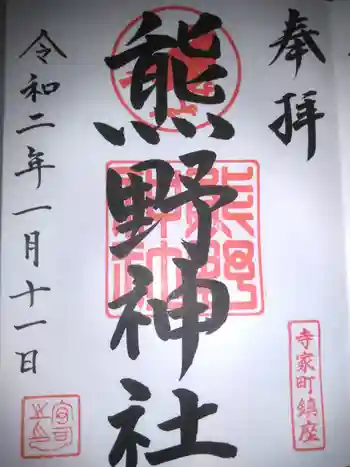 奉拝
寺家町鎮座
熊野神社
令和二年一月十一日
宮司之印